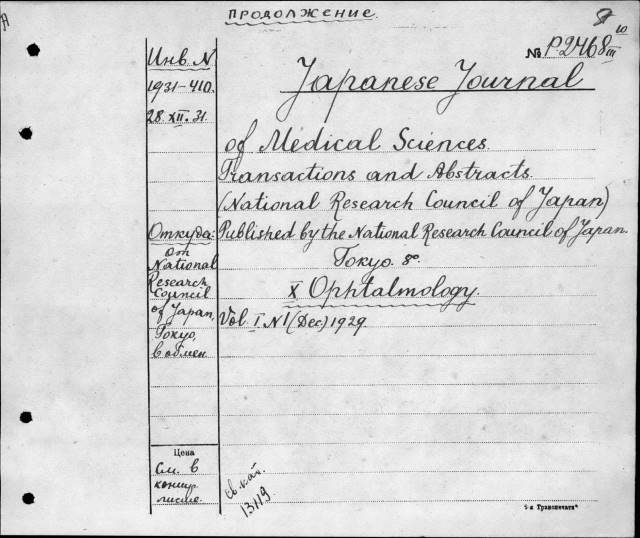 ПРОДОЛЖЕНИЕ.
№ P-2468 III
Инв. N
1931-410.
28. XII. 31.
Japanese Journal
of Medical Sciences.
Transactions and Abstracts.
(National Research Council of Japan)
Откуда:
Published by the National Research Council of Japan.
Tokyo. 8°.
X Ophtalmology.
Vol. I. N1 (Dec.) 1929.
От
National
Research
Council
of Japan,
Tokyo,
в обмен.
Цена
См. в
листе.
13119